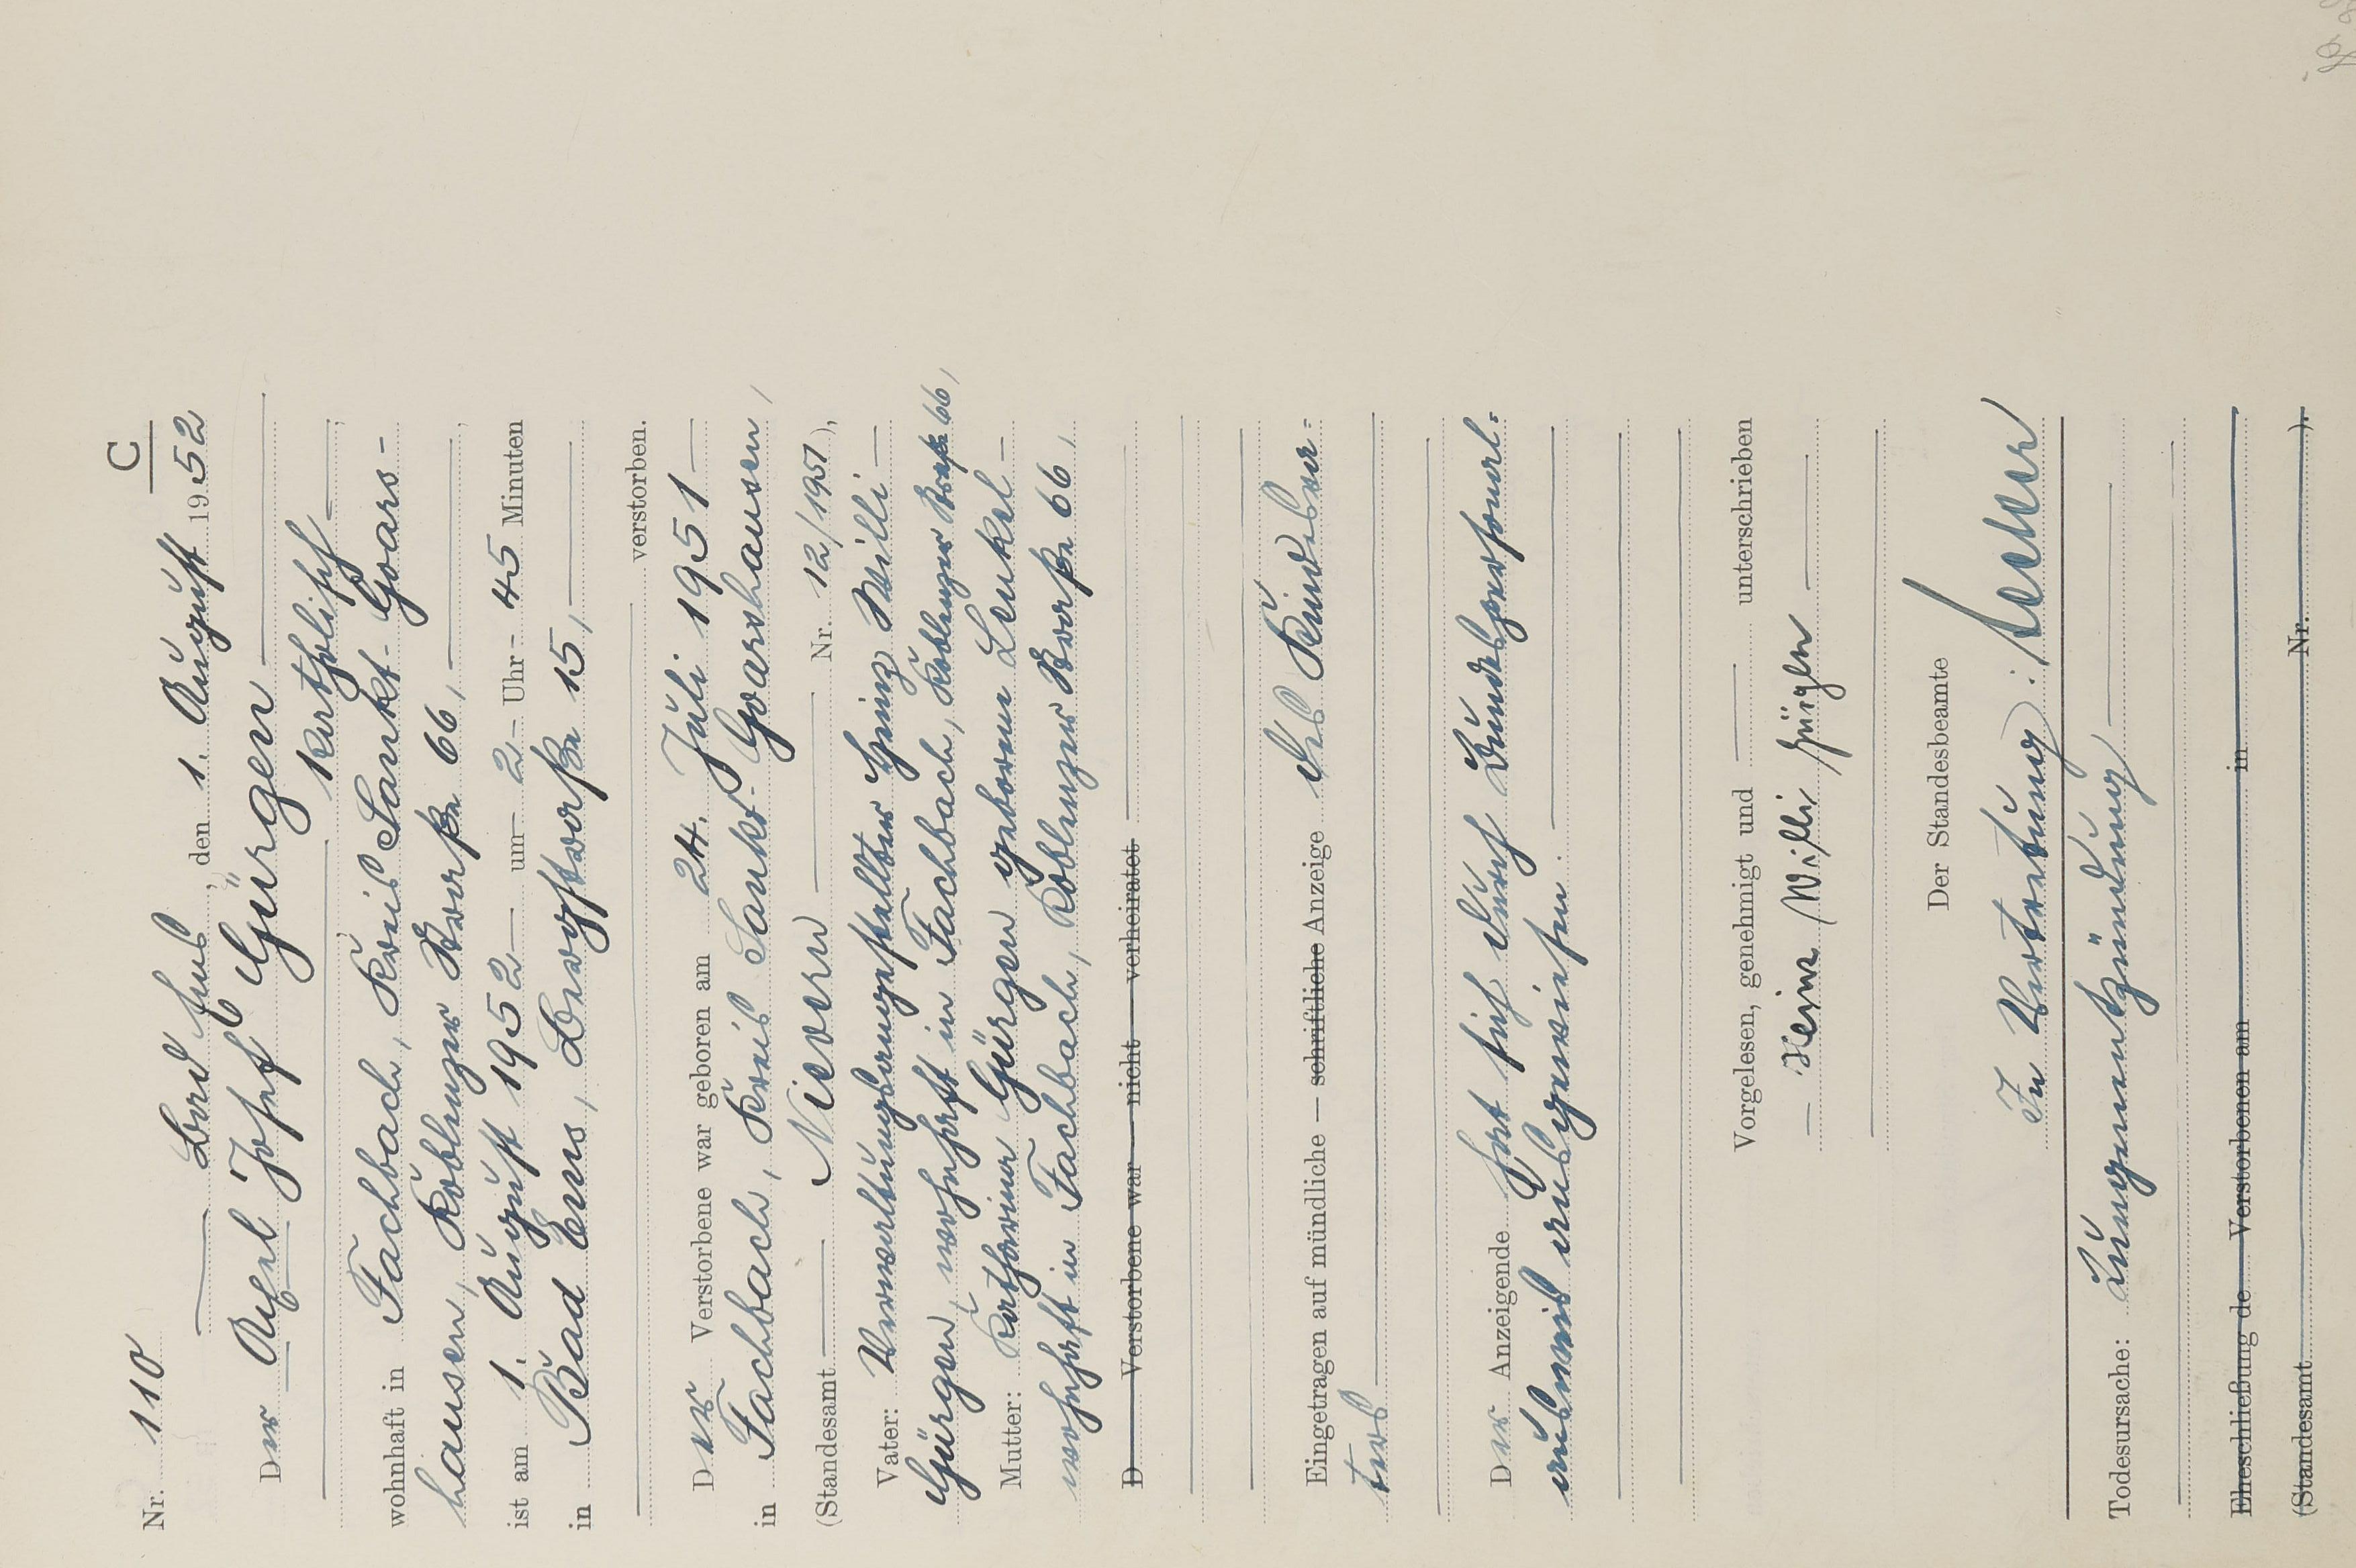 C
Nr. 110
Bad Ems, den 1. August 1952
Der Axel Josef Gürgen
katholisch
wohnhaft in Fachbach, Kreis Sankt-Goars-
hausen, Koblenzer Straße 66,
ist am 1. August 1952 um 2 Uhr 45 Minuten
in Bad Ems, Bergstraße 15,
verstorben.
Der Verstorbene war geboren am 24. Juli 1951
in Fachbach, Kreis Sankt-Goarshausen,
(Standesamt Nievern Nr. 12/1951),
Vater: Verwaltungsangestellter Heinz Willi
Gürgen, wohnhaft in Fachbach, Koblenzer Straße 66,
Mutter: Katharina Gürgen geborene Lenkel
wohnhaft in Fachbach, Koblenzer Straße 66,
D Verstorbene war nicht verheiratet
Eingetragen auf mündliche — schriftliche Anzeige des Kindesva-
ters
Der Anzeigende hat sich durch Bundespersonal-
ausweis ausgewiesen.
Vorgelesen, genehmigt und unterschrieben
Heinz Willi Gürgen
Der Standesbeamte
In Vertretung:
Todesursache: Lungenentzündung
Eheschließung de Verstorbenen am in
(Standesamt Nr. ).